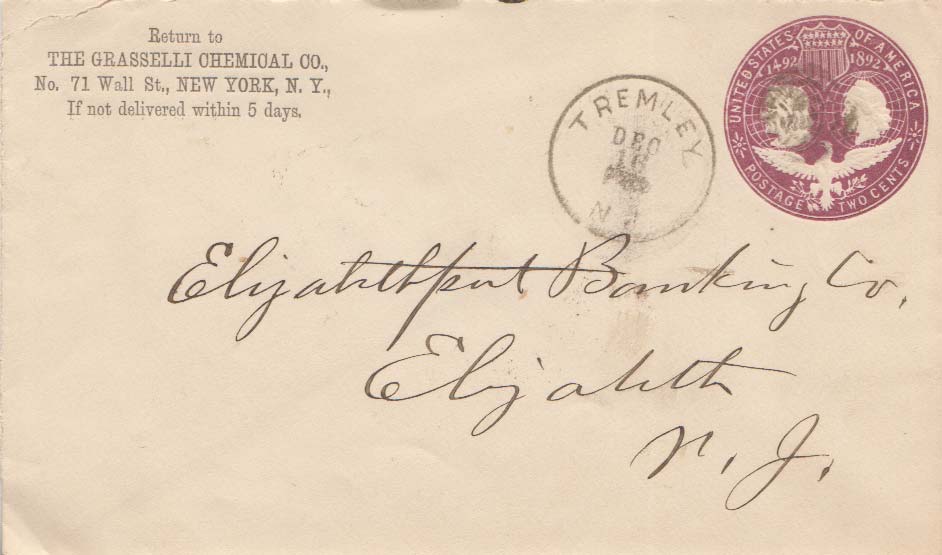 Return to
THE GRASSELLI CHEMICAL CO.,
No. 71 Wall St., NEW YORK, N. Y.,
If not delivered within 5 days.
UNITED STATES OF AMERICA
1492 1892
POSTAGE TWO CENTS
TREMLEY
DEC
16
N
Elizabethport Banking Co.
Elizabeth
N. J.